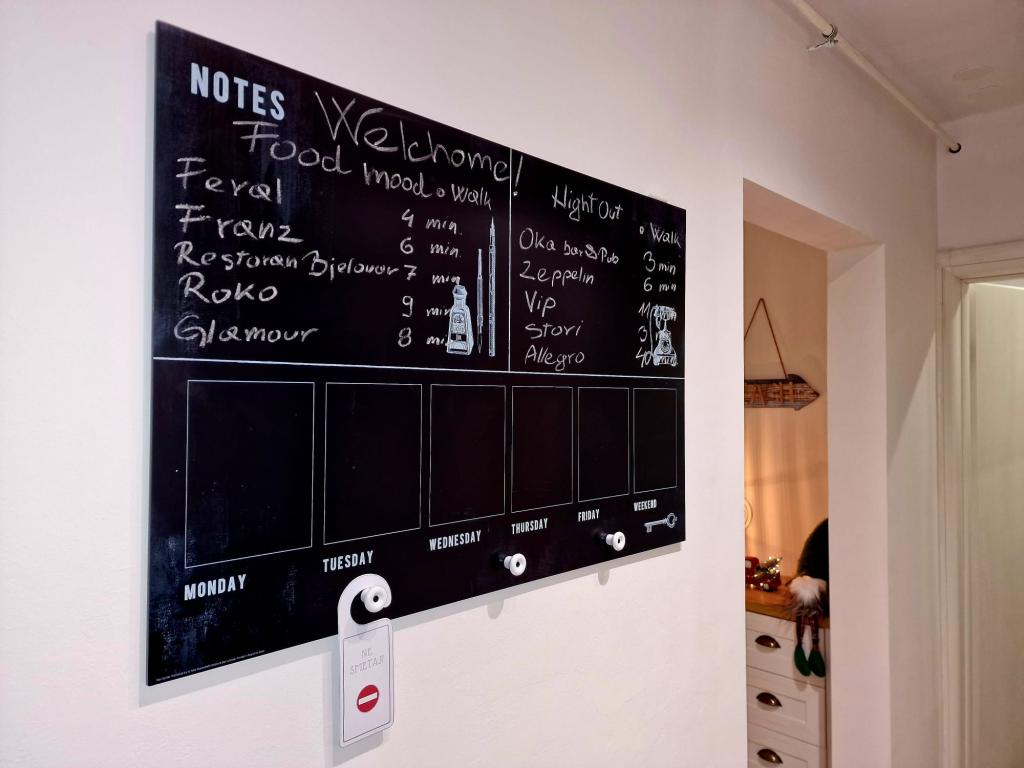 NOTES
Welchome!
Food mood • Walk
Feral 4 min.
Franz 6 min.
Restoran Bjelovar 7 min
Roko 9 min
Glamour 8 min
Night Out
• Walk
Oka bar & Pub 3 min
Zeppelin 6 min
Vip
Stori 3
Allegro
MONDAY
TUESDAY
WEDNESDAY
THURSDAY
FRIDAY
WEEKEND
NE
SMETAJ!